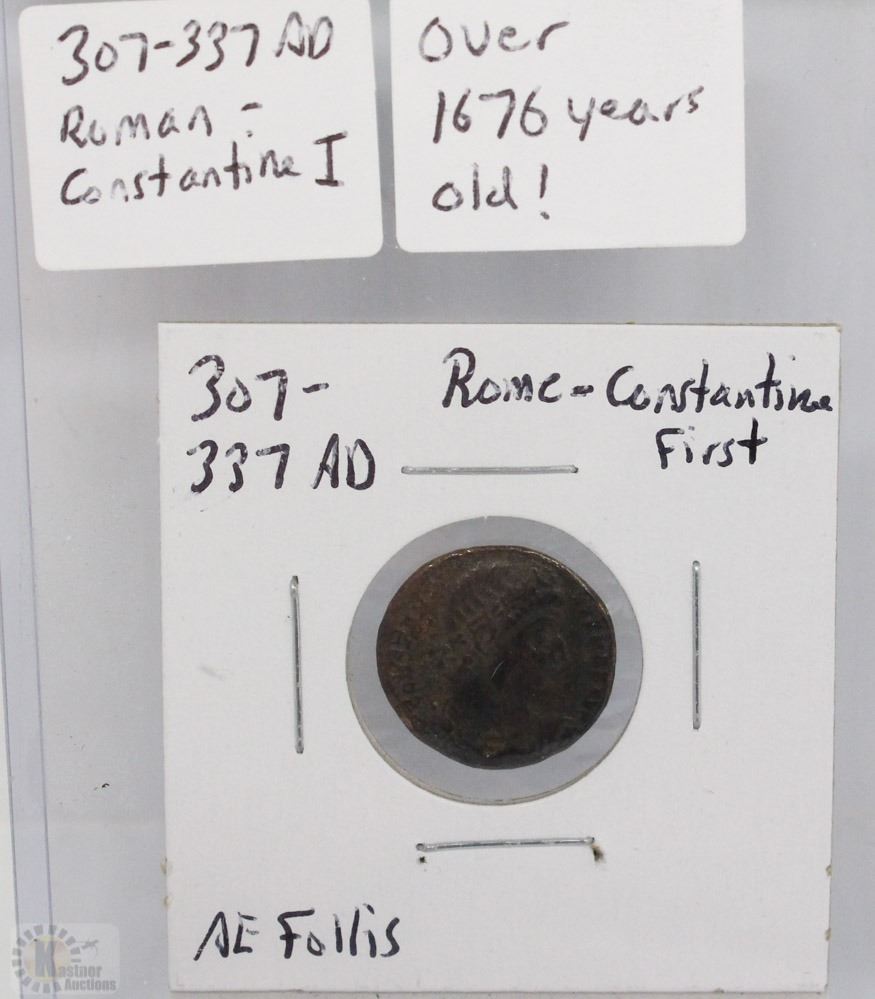 307-337 AD
Roman -
Constantine I
Over
1676 years
old!
307-
337 AD
Rome - Constantine
First
AE Follis
Kastner
Auctions